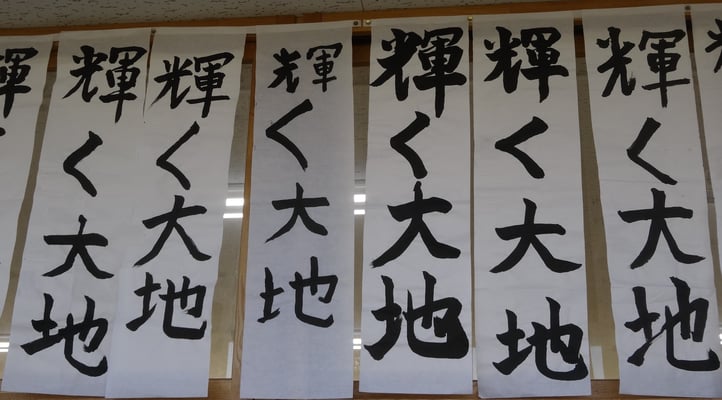 輝く大地
輝く大地
輝く大地
輝く大地
輝く大地
輝く大地
輝